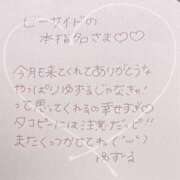 シーサイドの
本指名さま♡♡
今月も来てくれてありがとうな
やっぱりゆずるじゃなきゃい
って思てくれるの幸せすぎ♡
タコピーには注意だっピ
またくっつかせてね(˘⌣˘)
ゆずる